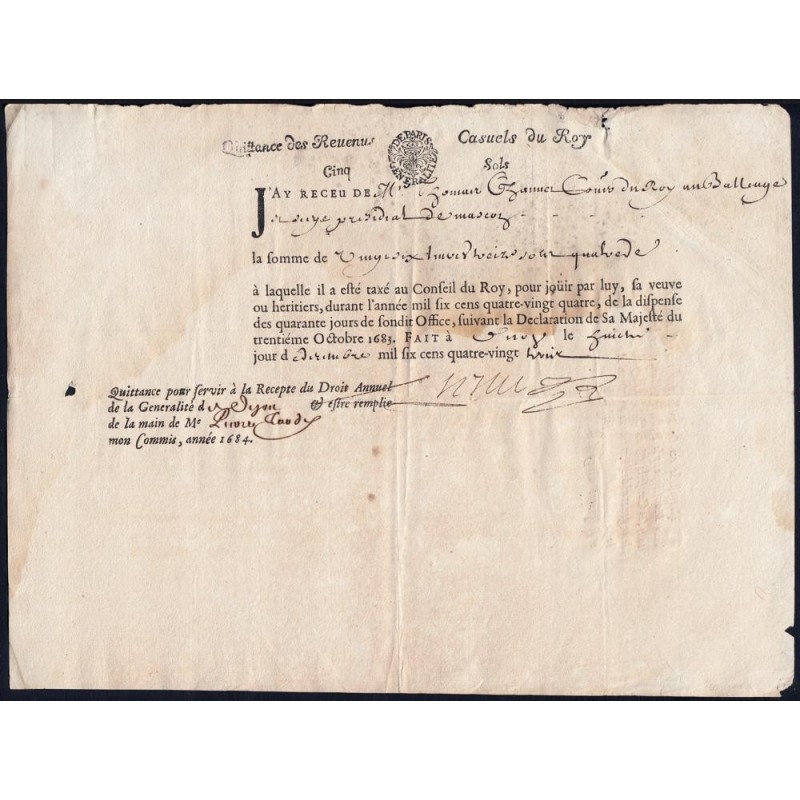 Quittance des Reuenus Casuels du Roy
GENERALITE DE PARIS
Cinq Sols
J'AY RECEU DE Mr Thomas Channet Conser du Roy au Bailliage
et siege presidial de mascon
la somme de Vingt six livres treize sols quatre de
à laquelle il a esté taxé au Conseil du Roy, pour joüir par luy, sa veuve
ou heritiers, durant l'année mil six cens quatre-vingt quatre, de la dispense
des quarante jours de sondit Office, suivant la Declaration de Sa Majesté du
trentiéme Octobre 1683. FAIT à le huictie
jour de decembre mil six cens quatre-vingt trois
Quittance pour servir à la Recepte du Droit Annuel
de la Generalité de Dijon & estre remplie
de la main de Me Pierre
mon Commis, année 1684.